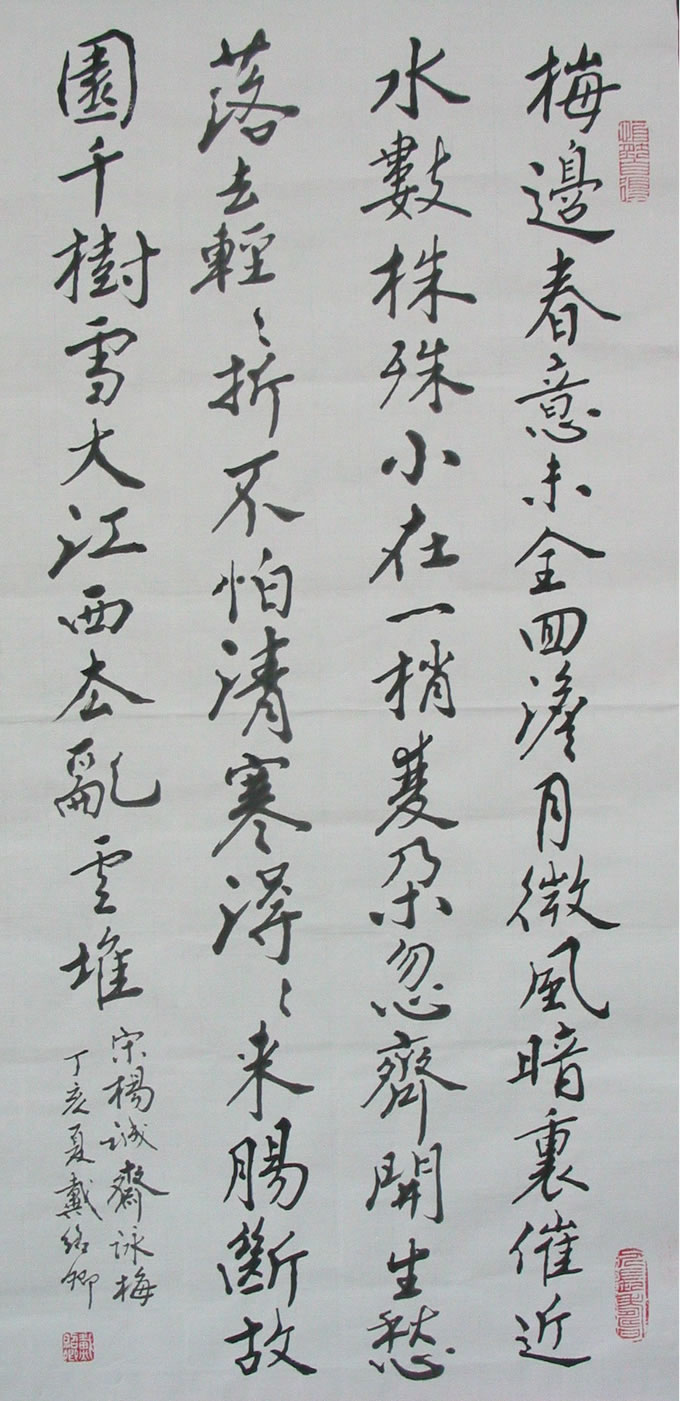 梅邊春意未全回澹月微風暗裏催近
水數株殊小在一梢雙朶忽齊開生愁
落去輕〻折不怕清寒得〻来腸斷故
園千樹雪大江西去亂雲堆
宋楊誠齋詠梅
丁亥夏戴卿